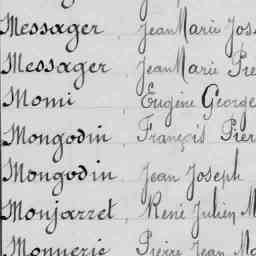 Messager, Jean Marie Jos
Messager, Jean Marie Pie
Momi, Eugène George
Mongodin, François Pier
Mongodin, Jean Joseph
Monjarret, René Julien M
Monnerie, Pierre Jean Ma